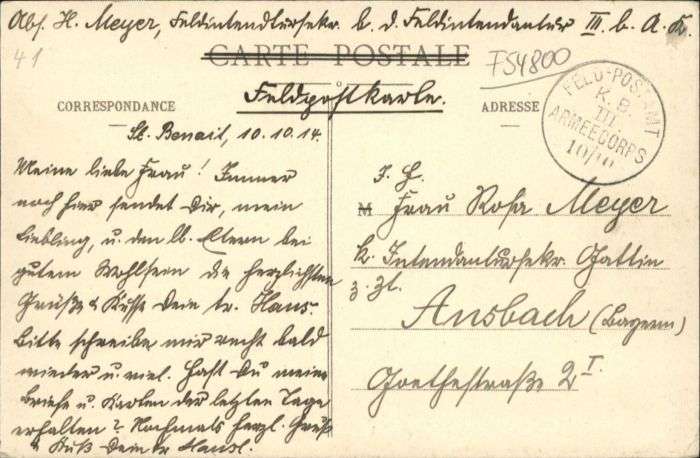 Abs. H. Meyer, Feldintendtursekr. b. d. Feldintendantur III. b. A. K.
41
CARTE POSTALE
FS4800
Feldpostkarte.
CORRESPONDANCE
ADRESSE
FELD-POSTAMT
K. B.
III.
ARMEECORPS
10/10
St. Benoit, 10.10.14.
Meine liebe Frau! Immer
noch hier sendet Dir, mein
Liebling, u. den lb. Eltern bei
gutem Wohlsein die herzlichsten
Grüße & Küsse Dein tr. Hans.
Bitte schreibe mir recht bald
wieder u. viel. Hast Du meine
Briefe u. Karten der letzten Tage
erhalten? Nochmals herzl. Gruß
& Kuß Dein tr. Hansl.
I. H.
M
Frau Rosa Meyer
K. Intendantursekr. Gattin
z. Zt.
Ansbach (Bayern)
Goethestraße 2 I.